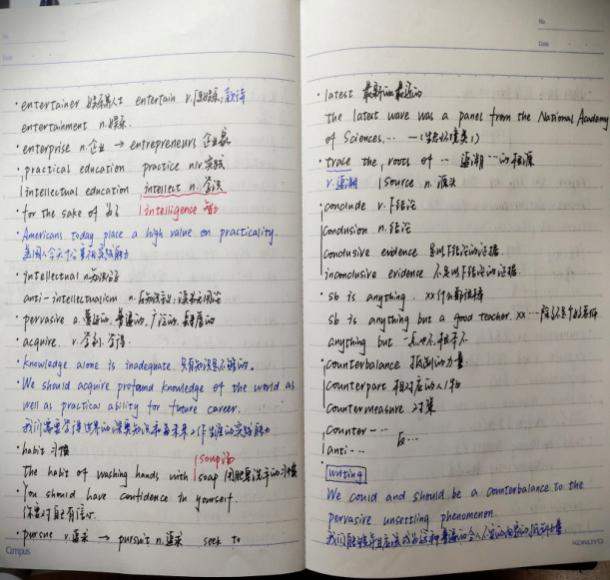 · entertainer 娱乐艺人 entertain v. 使娱乐,款待
entertainment n. 娱乐
· enterprise n. 企业 → entrepreneurs 企业家
practical education practice n/v. 实践
intellectual education intellect n.
· for the sake of 为了 intelligence 智力
· Americans today place a high value on practicality.
美国人今天十分重视实践能力
· intellectual n. 知识分子
anti-intellectualism n. 反知识主义
· pervasive a. 普遍的
· acquire v. 学到,学得
· knowledge alone is inadequate 只有知识是不够的。
· We should acquire profound knowledge of the world as
well as practical ability for future career.
我们需要学得世界的深奥知识
· habit 习惯 soup汤
The habit of washing hands with soap 用肥皂洗手的习惯
· You should have confidence in yourself.
你要对自己有信心.
· pursue v. 追求 → pursuit n. 追求 seek to
Campus
No.
Date
· latest 最新的 最近的
The latest wave was a panel from the National Academy
of Sciences, ...
· trace the roots of ... 追溯...的根源
v. 追溯 source n. 源头
conclude v. 下结论
conclusion n. 结论
conclusive evidence 足以下结论的证据
inconclusive evidence 不足以下结论的证据
· sb is anything. xx什么都
sb is anything but a good teacher. xx
anything but 一点也不,根本不
counterbalance 抵制的力量
counterpart 相对应的人/物
countermeasure 对策
counter-...
anti-... 反...
writing
We could and should be a counterbalance to the
pervasive unsettling phenomenon.
KOKUYO